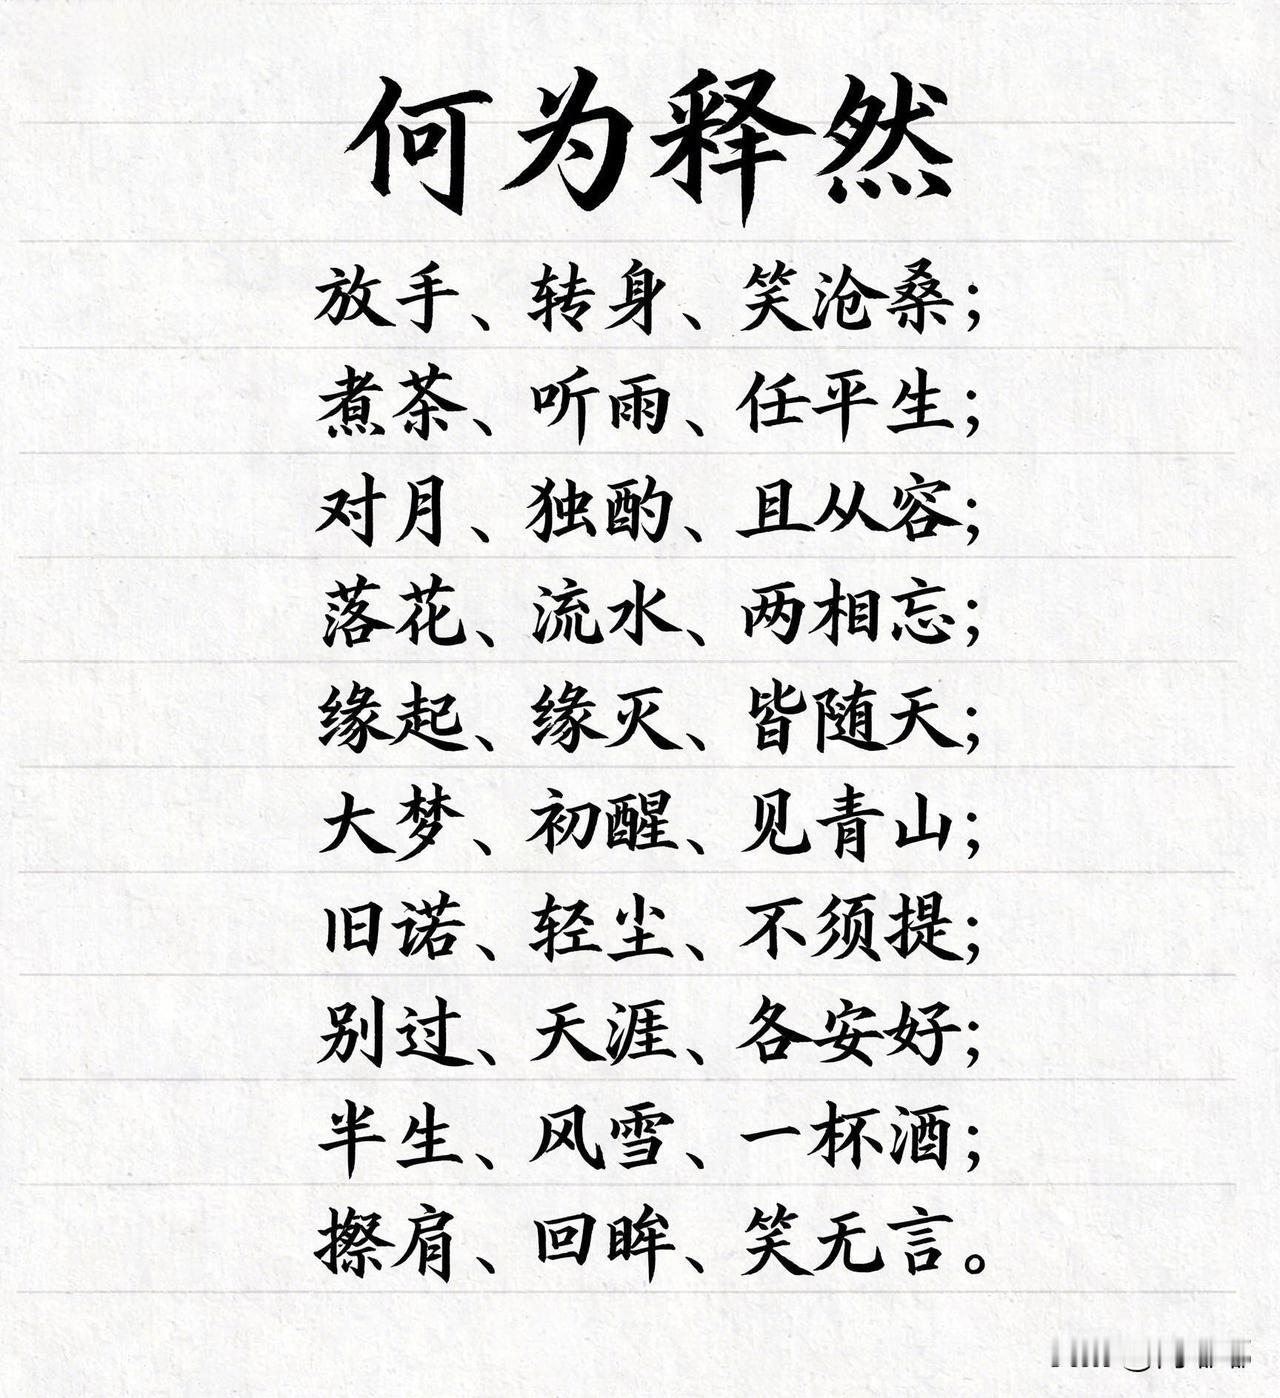 何为释然
放手、转身、笑沧桑；
煮茶、听雨、任平生；
对月、独酌、且从容；
落花、流水、两相忘；
缘起、缘灭、皆随天；
大梦、初醒、见青山；
旧诺、轻尘、不须提；
别过、天涯、各安好；
半生、风雪、一杯酒；
擦肩、回眸、笑无言。